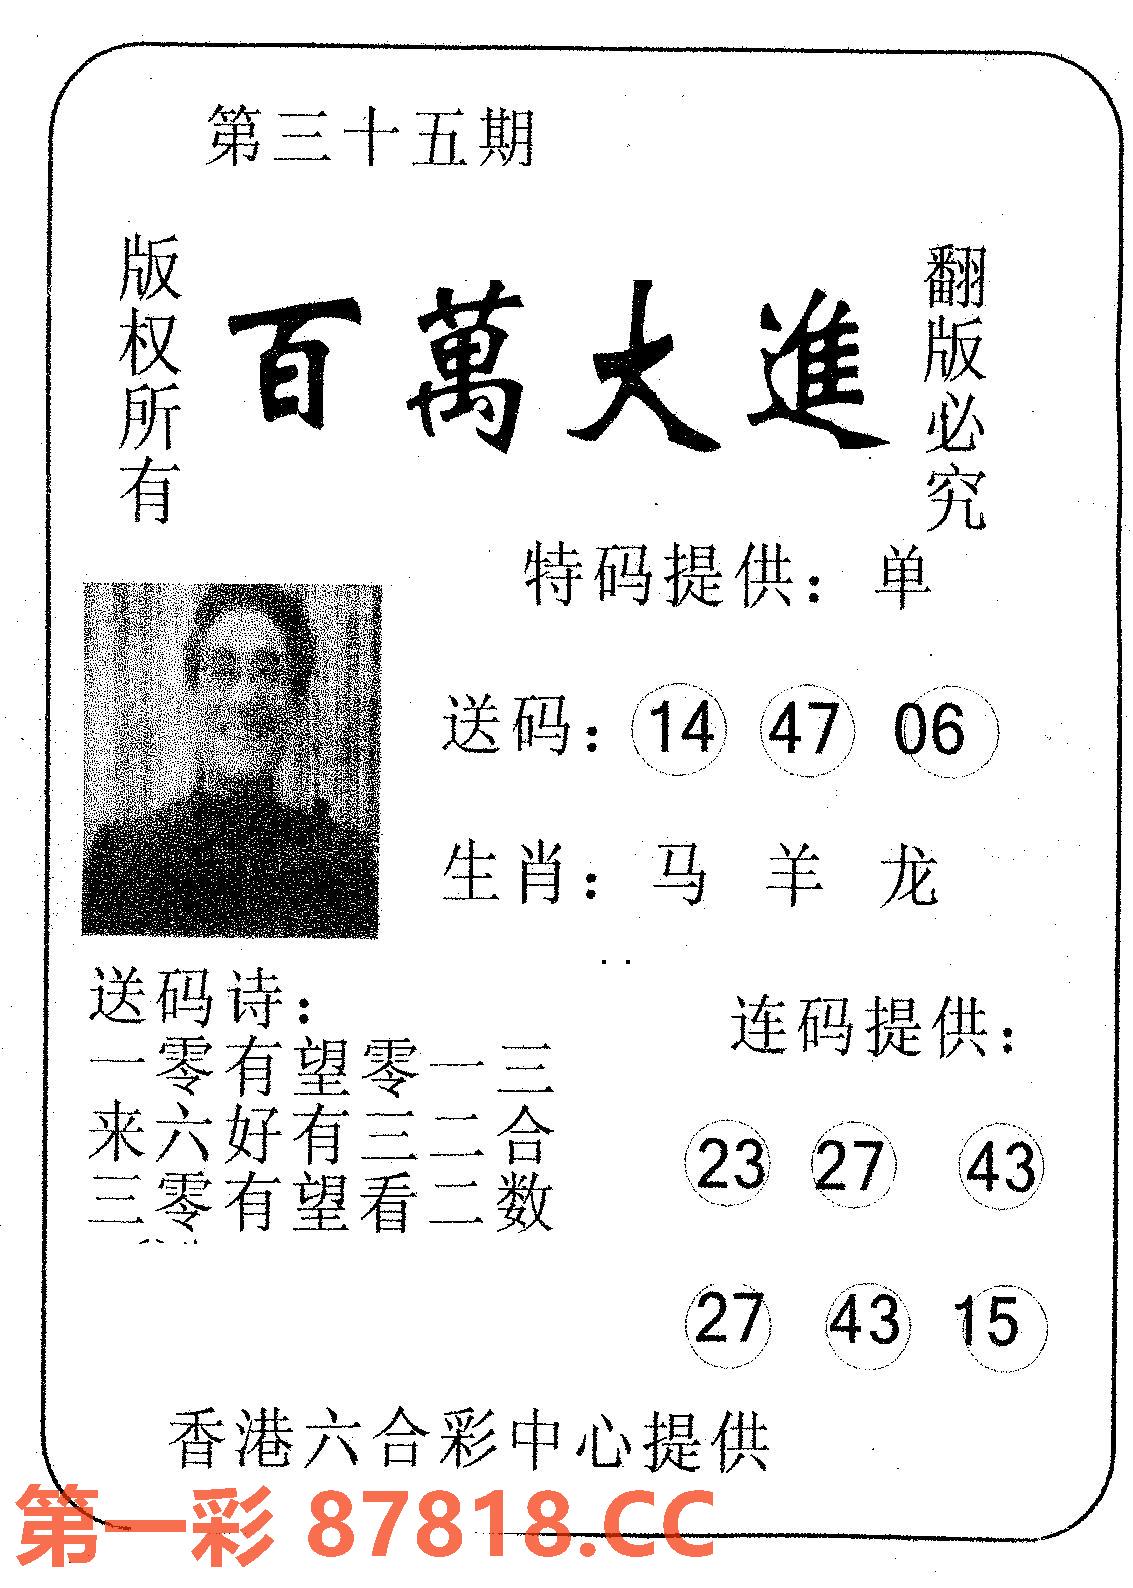 第三十五期
版权所有
百萬大進
翻版必究
特码提供：单
送码：14 47 06
生肖：马 羊 龙
送码诗：
一零有望零一三
来六好有三二合
三零有望看二数
连码提供：
23 27 43
27 43 15
香港六合彩中心提供
第一彩 87818.CC